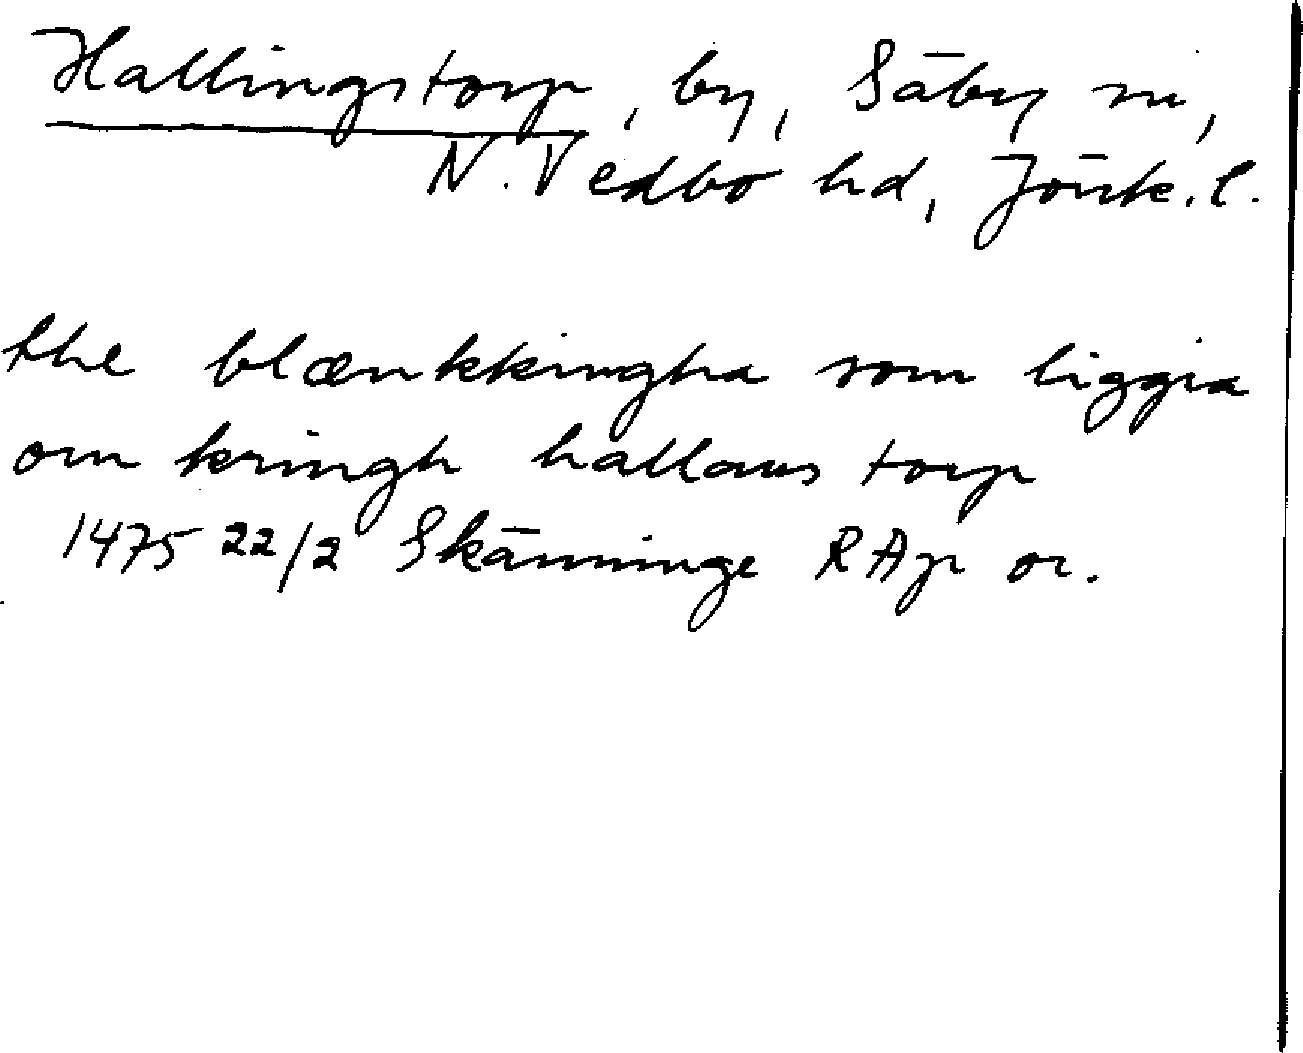 Hallingstorp, by, Säby sn,
N. Vedbo hd, Jönk. l.
the blænkkingha som liggia
om kringh hallans torp
1475 22/2 Skänninge RAp or.